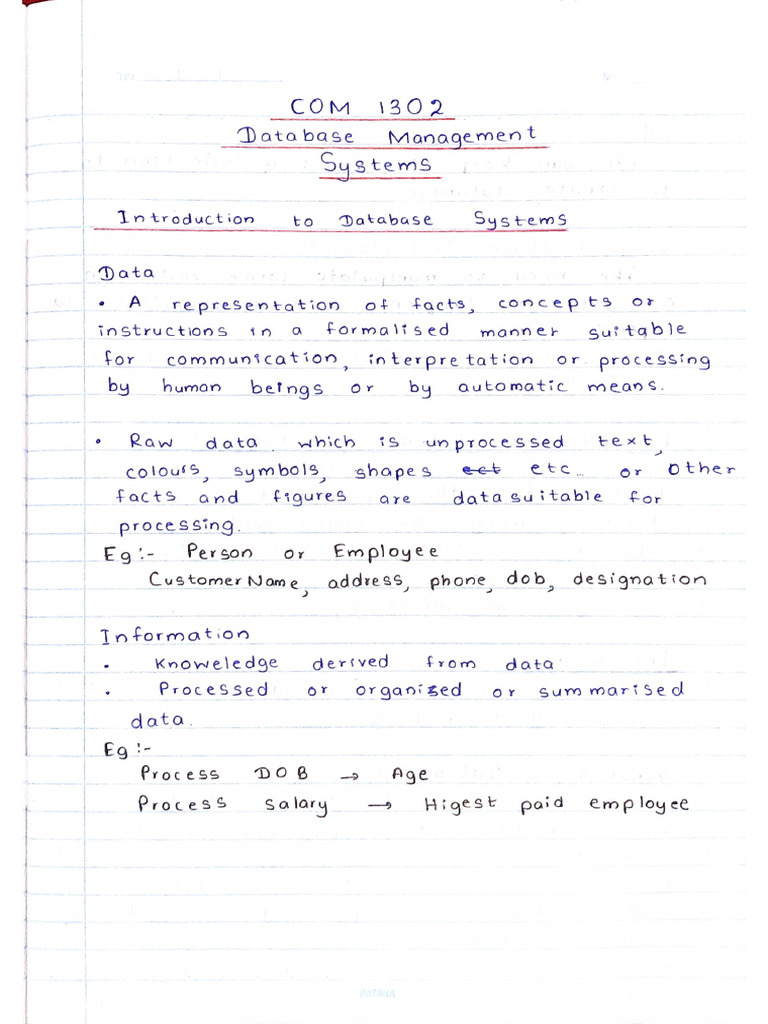 COM 1302
Database Management
Systems
Introduction to Database Systems
Data
• A representation of facts, concepts or
instructions in a formalised manner suitable
for communication, interpretation or processing
by human beings or by automatic means.
• Raw data which is unprocessed text,
colours, symbols, shapes ect etc... or other
facts and figures are data suitable for
processing.
Eg :- Person or Employee
Customer Name, address, phone, dob, designation
Information
• Knoweledge derived from data
• Processed or organised or summarised
data.
Eg :-
Process DOB → Age
Process Salary → Higest paid employee